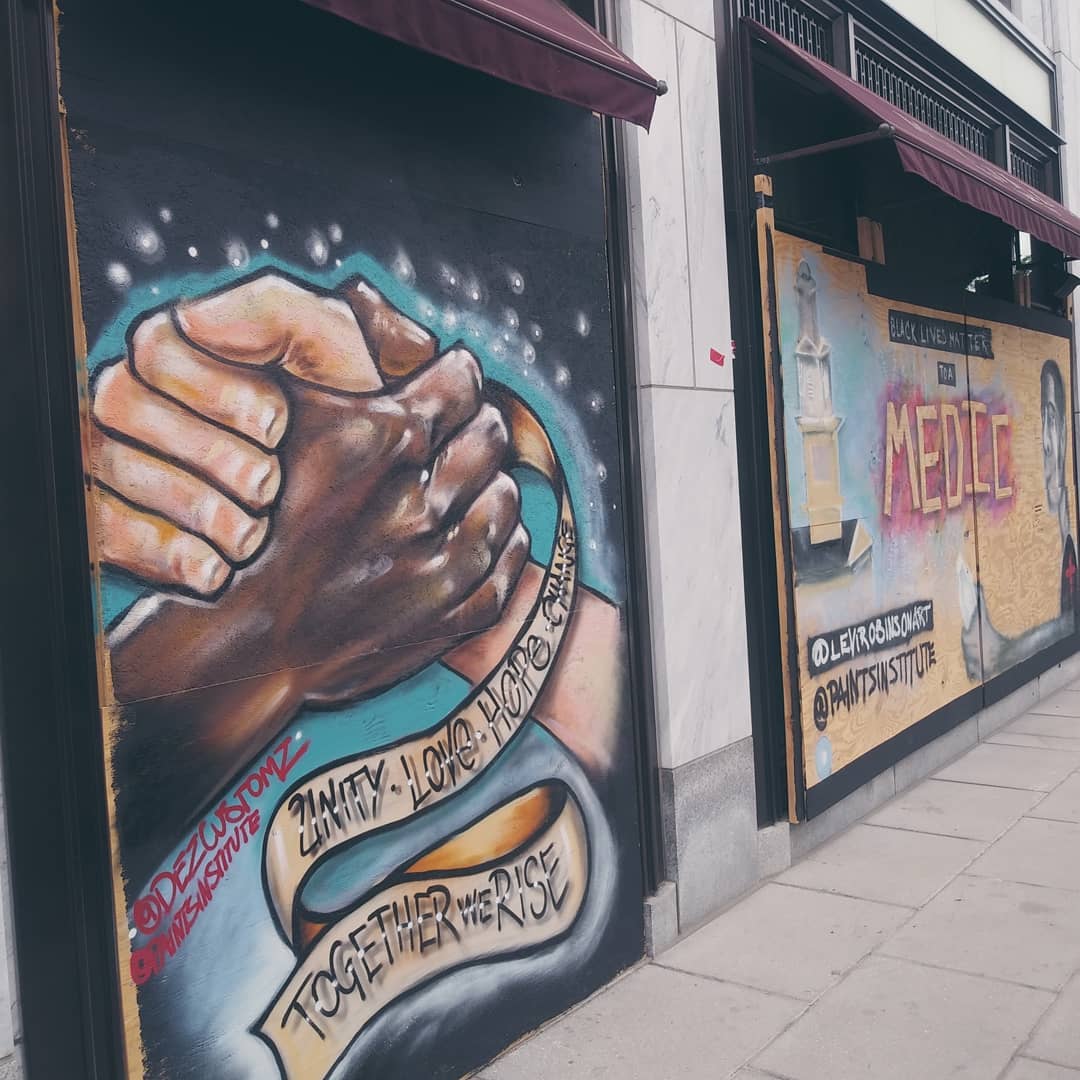 UNITY · LOVE · HOPE · CHANGE
TOGETHER WE RISE
@DEZCUSTOMZ
@PAINTSINSTITUTE
BLACK LIVES MATTER
TO A
MEDIC
@LEVIROBINSONART
@PAINTSINSTITUTE